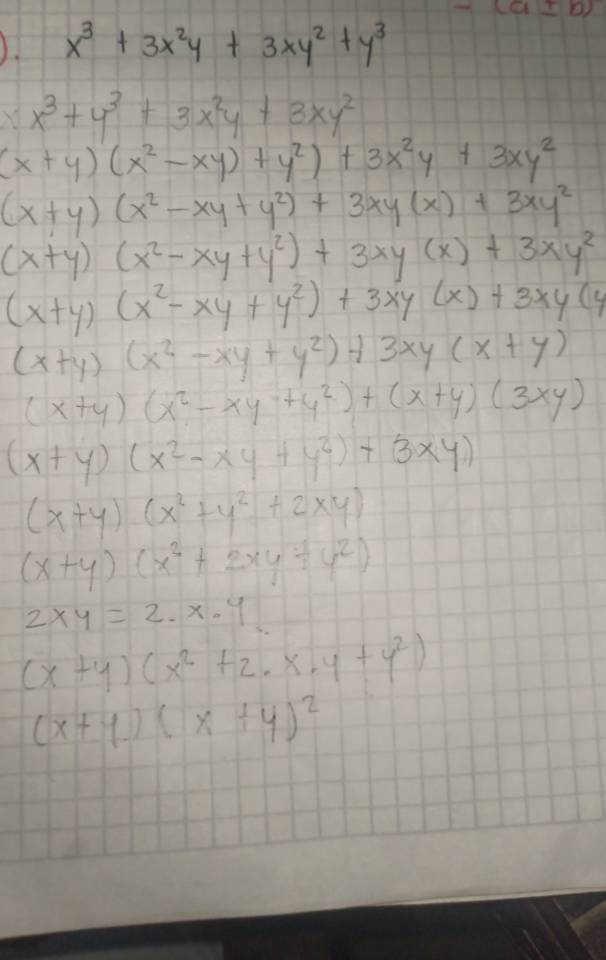 - (a ± b)
). x³ + 3x²y + 3xy² + y³
x³ + y³ + 3x²y + 3xy²
(x + y) (x² - xy) + y²) + 3x²y + 3xy²
(x+y) (x² - xy + y²) + 3xy (x) + 3xy²
(x+y) (x² - xy + y²) + 3xy (x) + 3xy²
(x+y) (x² - xy + y²) + 3xy (x) + 3xy (y
(x+y) (x² - xy + y²) + 3xy (x + y)
(x+y) (x² - xy + y²) + (x+y) (3xy)
(x+y) (x² - xy + y²) + 3xy)
(x+y) (x² + y² + 2xy)
(x+y) (x² + 2xy + y²)
2xy = 2.x.y
(x+y) (x² + 2.x.y + y²)
(x+y) (x + y)²